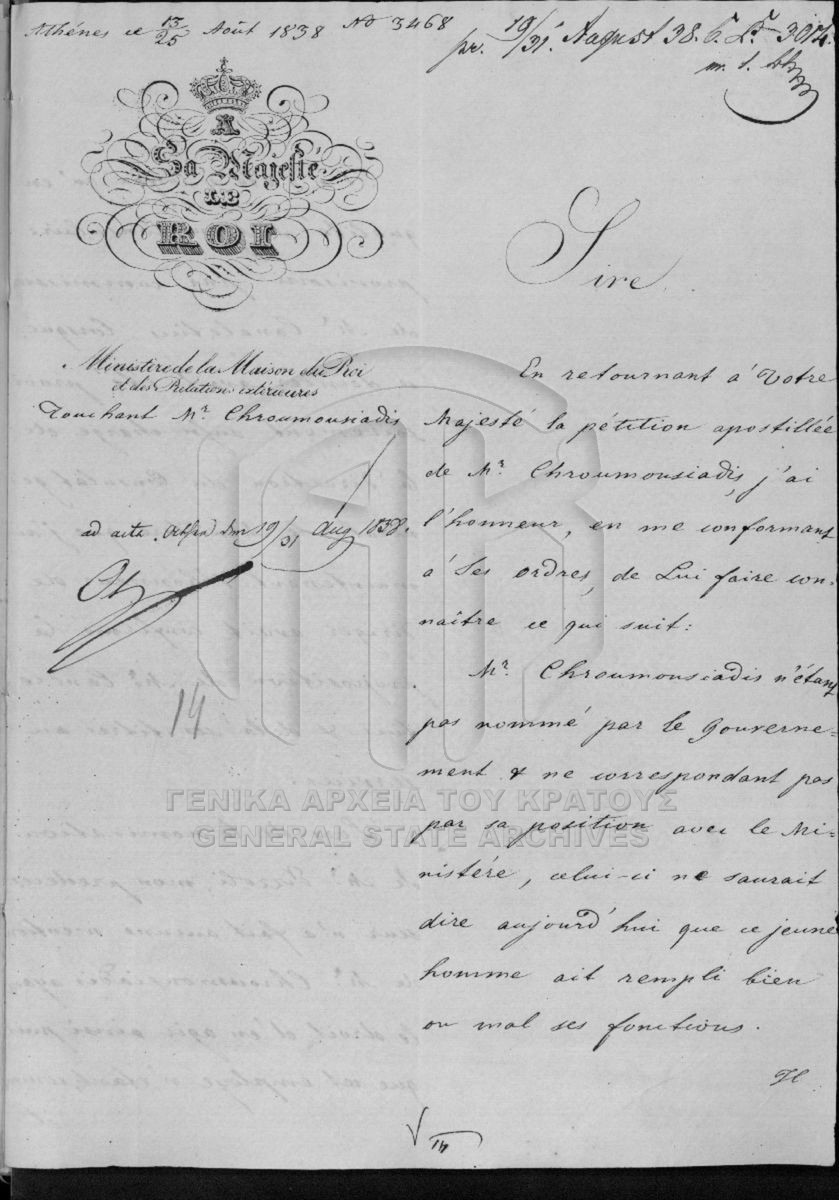 Athénes ce 13/25 Août 1838 No 3468
pr. 19/31. August 38.
A
Sa Majesté
LE
ROI
Sire
Ministère de la Maison du Roi
et des Relations extérieures
Touchant Mr. Chroumousiadis
ad acta. Athen den 19/31 Aug 1838.
14
En retournant à Votre
Majesté la pétition apostillée
de Mr. Chroumousiadis, j'ai
l'honneur, en me conformant
à Ses ordres, de Lui faire con-
naître ce qui suit:
Mr. Chroumousiadis n'étant
pas nommé par le Gouverne-
ment & ne correspondant pas
par sa position avec le Mi-
nistére, celui-ci ne saurait
dire aujourd'hui que ce jeune
homme ait rempli bien
ou mal ses fonctions.
Il
14
ΓΕΝΙΚΑ ΑΡΧΕΙΑ ΤΟΥ ΚΡΑΤΟΥΣ
GENERAL STATE ARCHIVES